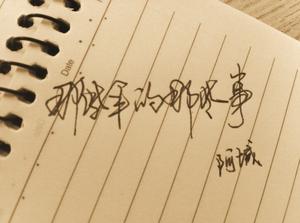 Date
那些年的那些事
阿城